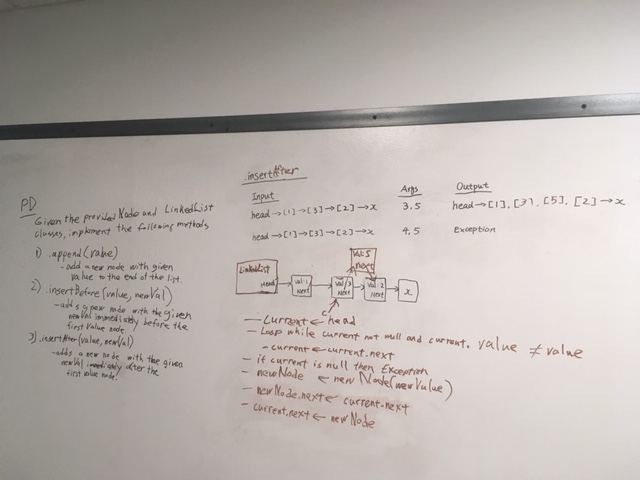 PD
Given the provided Node and LinkedList
classes, implement the following methods
1) .append(value)
- add a new node with given
value to the end of the list.
2) .insertBefore(value, newVal)
- adds a new node with the given
newVal immediately before the
first value node.
3) .insertAfter(value, newVal)
- adds a new node with the given
newVal immediately after the
first value node.
.insertAfter
Input Args Output
head→[1]→[3]→[2]→x 3,5 head→[1], [3], [5], [2]→x
head→[1]→[3]→[2]→x 4,5 Exception
LinkedList
Head
Val:1
Next
Val:3
Next
Val:5
next
Val:2
Next
x
c
- Current ← head
- Loop while current not null and current.value ≠ value
- current ← current.next
- if current is null then Exception
- newNode ← new Node(newValue)
- newNode.next ← current.next
- current.next ← newNode